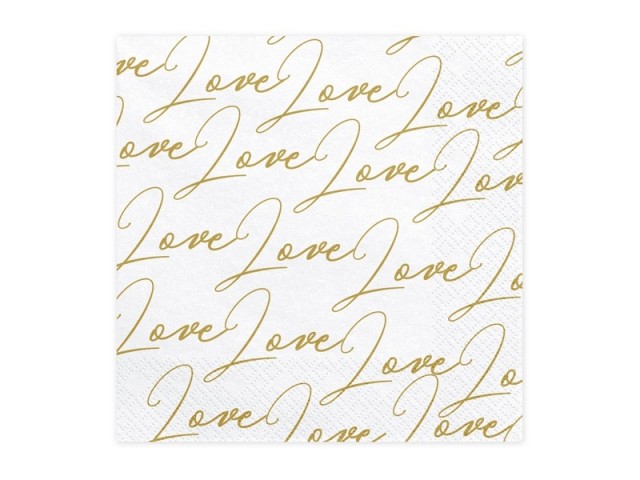 ove Love Love Love
ove Love Love Lov
Love Love Love Lo
Love Love Love Lo
Love Love Love